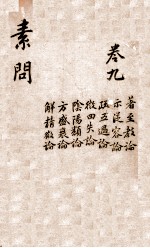 卷九
著至教論
示從容論
疏五過論
徵四失論
陰陽類論
方盛衰論
解精微論
素問